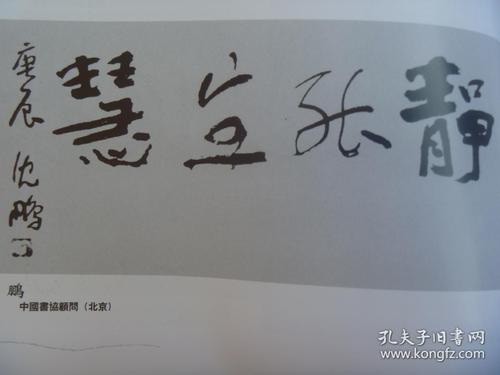 靜能慧
庚辰 沈鵬
鵬
中國書協顧問（北京）
孔夫子旧书网
www.kongfz.com